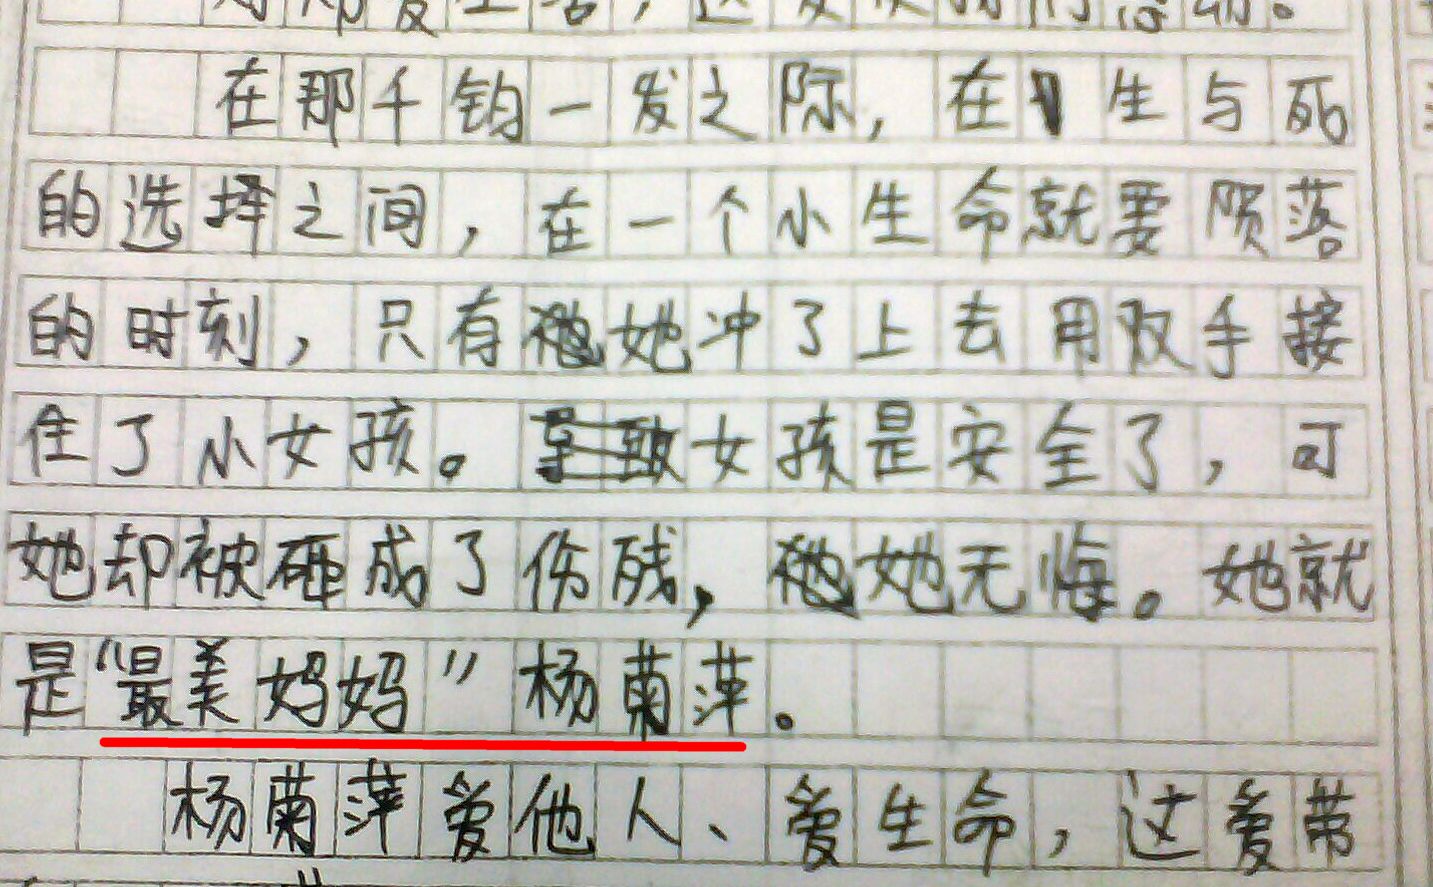 在那千钧一发之际，在生与死
的选择之间，在一个小生命就要陨落
的时刻，只有她冲了上去用双手接
住了小女孩。女孩是安全了，可
她却被砸成了伤残，她无悔。她就
是“最美妈妈”杨菊萍。
杨菊萍爱他人、爱生命，这爱带